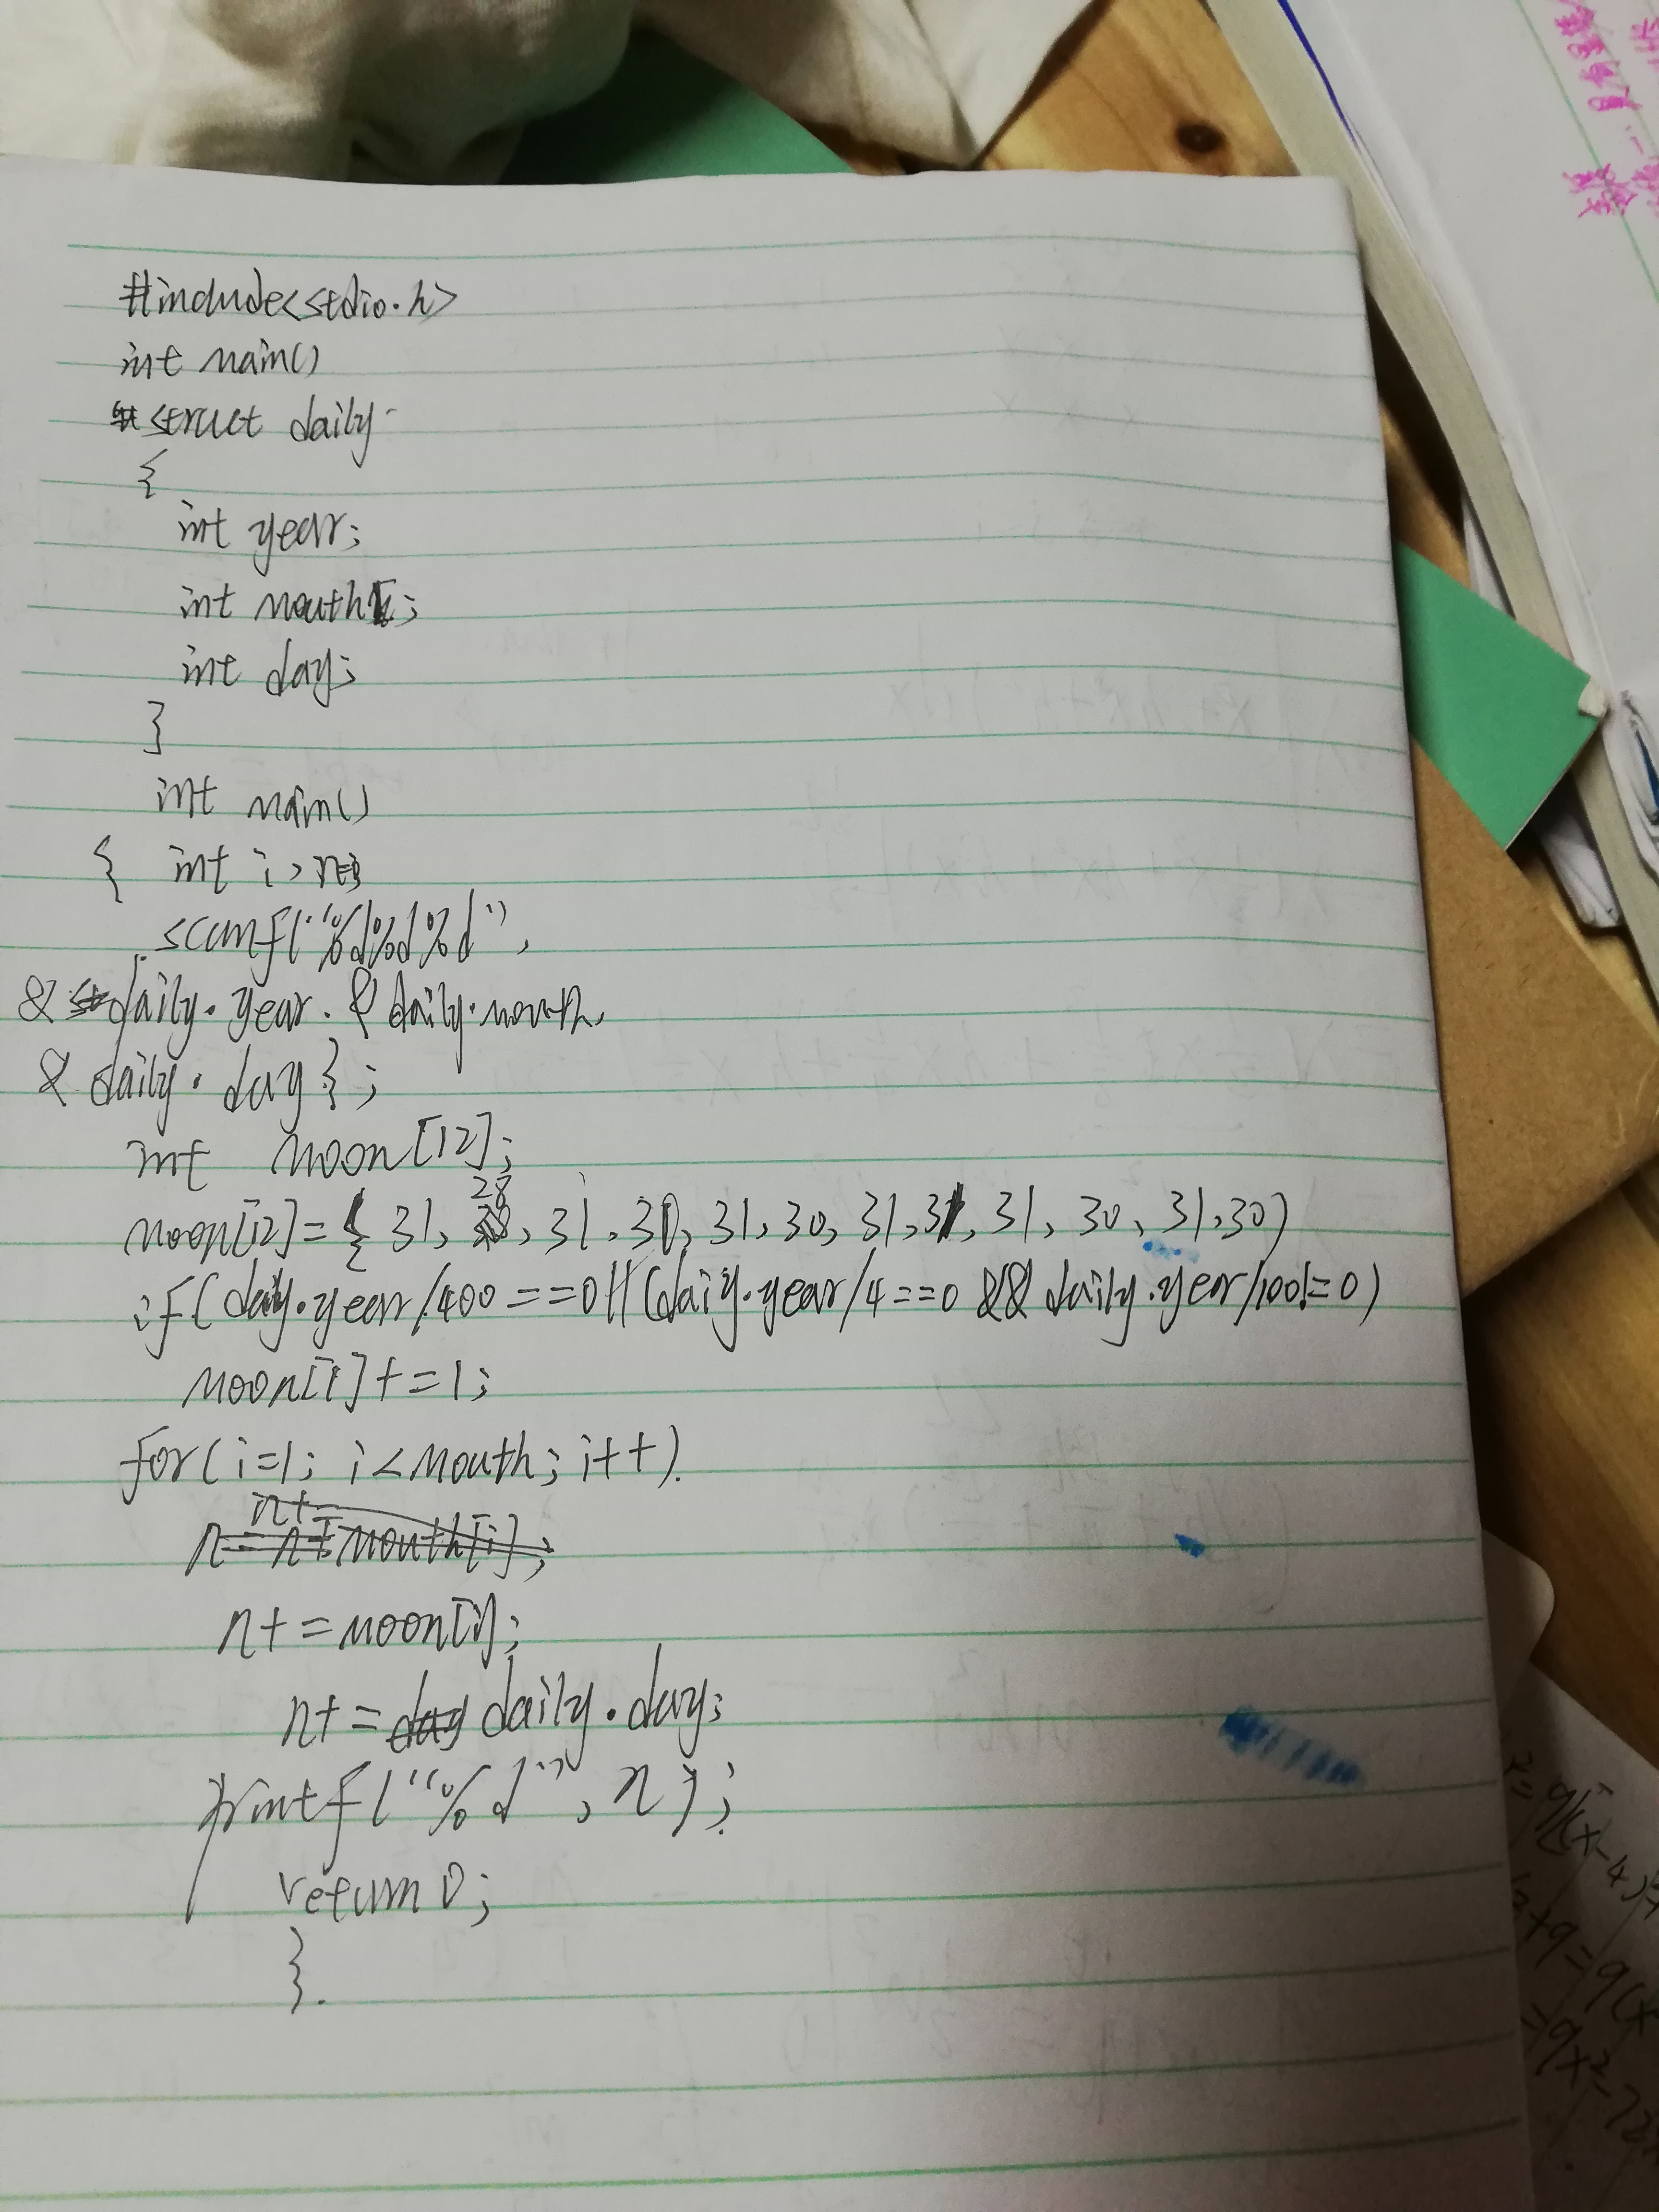 #include<stdio.h>
int main()
struct daily
{
int year;
int mouth;
int day;
}
int main()
{ int i,
scanf("%d%d%d",
& daily.year. & daily.mouth,
& daily.day};
int moon[12];
moon[12]={ 31, 28, 31, 30, 31, 30, 31, 31, 31, 30, 31, 30}
if(daily.year/400==0||(daily.year/4==0 && daily.year/100!=0)
moon[1]+=1;
for(i=1; i<mouth; i++).
n+=moon[i];
n+=daily.day;
printf("%d", n);
return 0;
}.